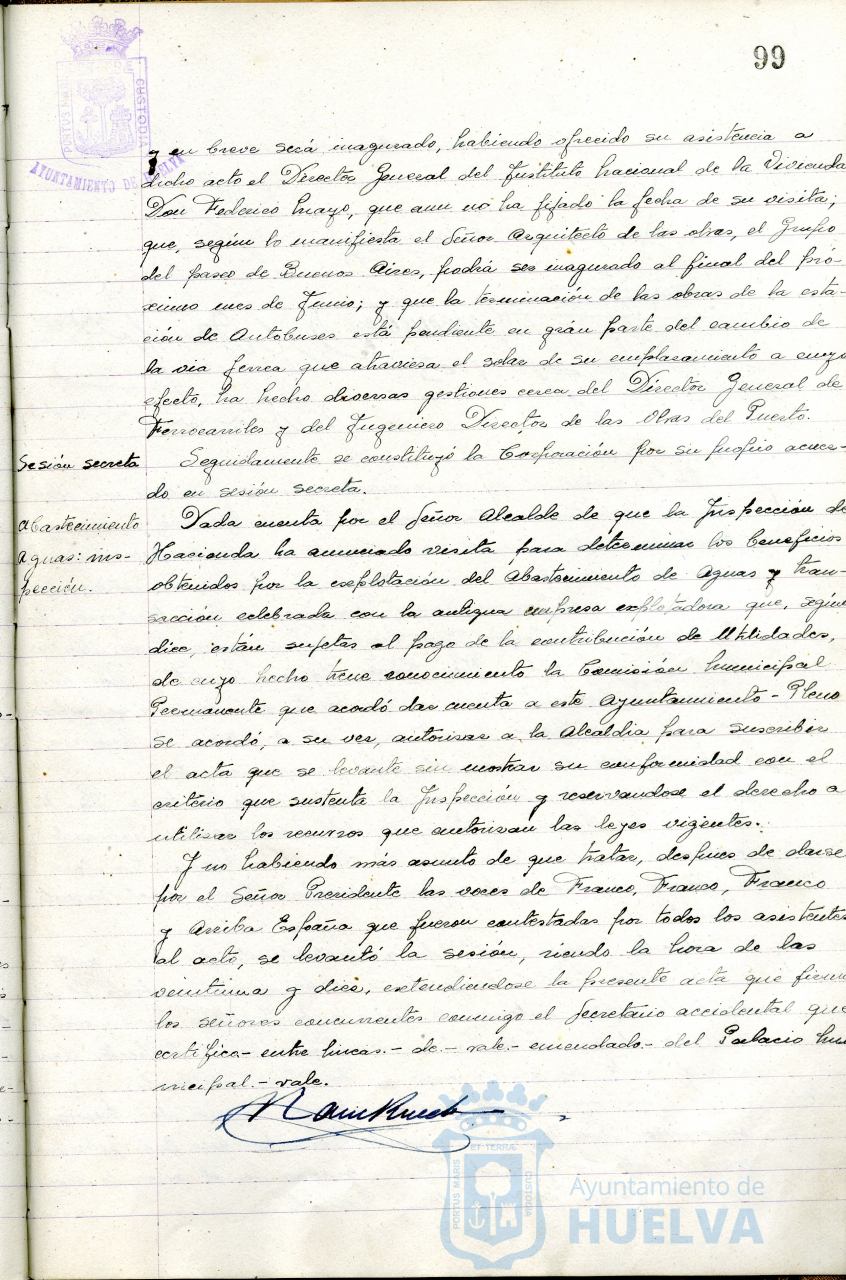 99
PORTUS MARIS
CUSTODIA
AYUNTAMIENTO DE HUELVA
y en breve será inagurado, habiendo ofrecido su asistencia a
dicho acto el Director General del Instituto Nacional de la Vivienda
Don Federico Mayo, que aun no ha fijado la fecha de su visita;
que, según lo manifiesta el Señor Arquitecto de las obras, el Grupo
del paseo de Buenos Aires, podrá ser inagurado al final del pró-
ximo mes de Junio; y que la terminación de las obras de la esta-
ción de Autobuses está pendiente en gran parte del cambio de
la via ferrea que atraviesa el solar de su emplazamiento a cuyo
efecto, ha hecho diversas gestiones cerca del Director General de
Ferrocarriles y del Ingeniero Director de las Obras del Puerto.
Sesión secreta
Seguidamente se constituyó la Corporación por su propio acuer-
do en sesión secreta.
Abastecimiento
Aguas: ins-
pección.
Dada cuenta por el Señor Alcalde de que la Inspección de
Hacienda ha anunciado visita para determinar los beneficios
obtenidos por la explotación del Abastecimiento de Aguas y tran-
sacción celebrada con la antigua empresa explotadora que, según
dice, están sujetas al pago de la contribución de Utilidades,
de cuyo hecho tiene conocimiento la Comisión Municipal
Permanente que acordó dar cuenta a este Ayuntamiento - Pleno
se acordó, a su vez, autorizar a la Alcaldia para suscribir
el acta que se levante sin mostrar su conformidad con el
criterio que sustenta la Inspección y reservandose el derecho a
utilizar los recursos que autorizan las leyes vigentes.
Y no habiendo más asunto de que tratar, despues de darse
por el Señor Presidente las voces de Franco, Franco, Franco
y Arriba España que fueron contestadas por todos los asistentes
al acto, se levantó la sesión, siendo la hora de las
veintiuna y diez, extendiendose la presente acta que firman
los señores concurrentes conmigo el Secretario accidental que
certifico.- entre lineas.- de.- vale.- enmendado.- del Palacio Mu
nicipal.- vale.
PORTUS MARIS
ET TERRÆ
CUSTODIA
Ayuntamiento de
HUELVA